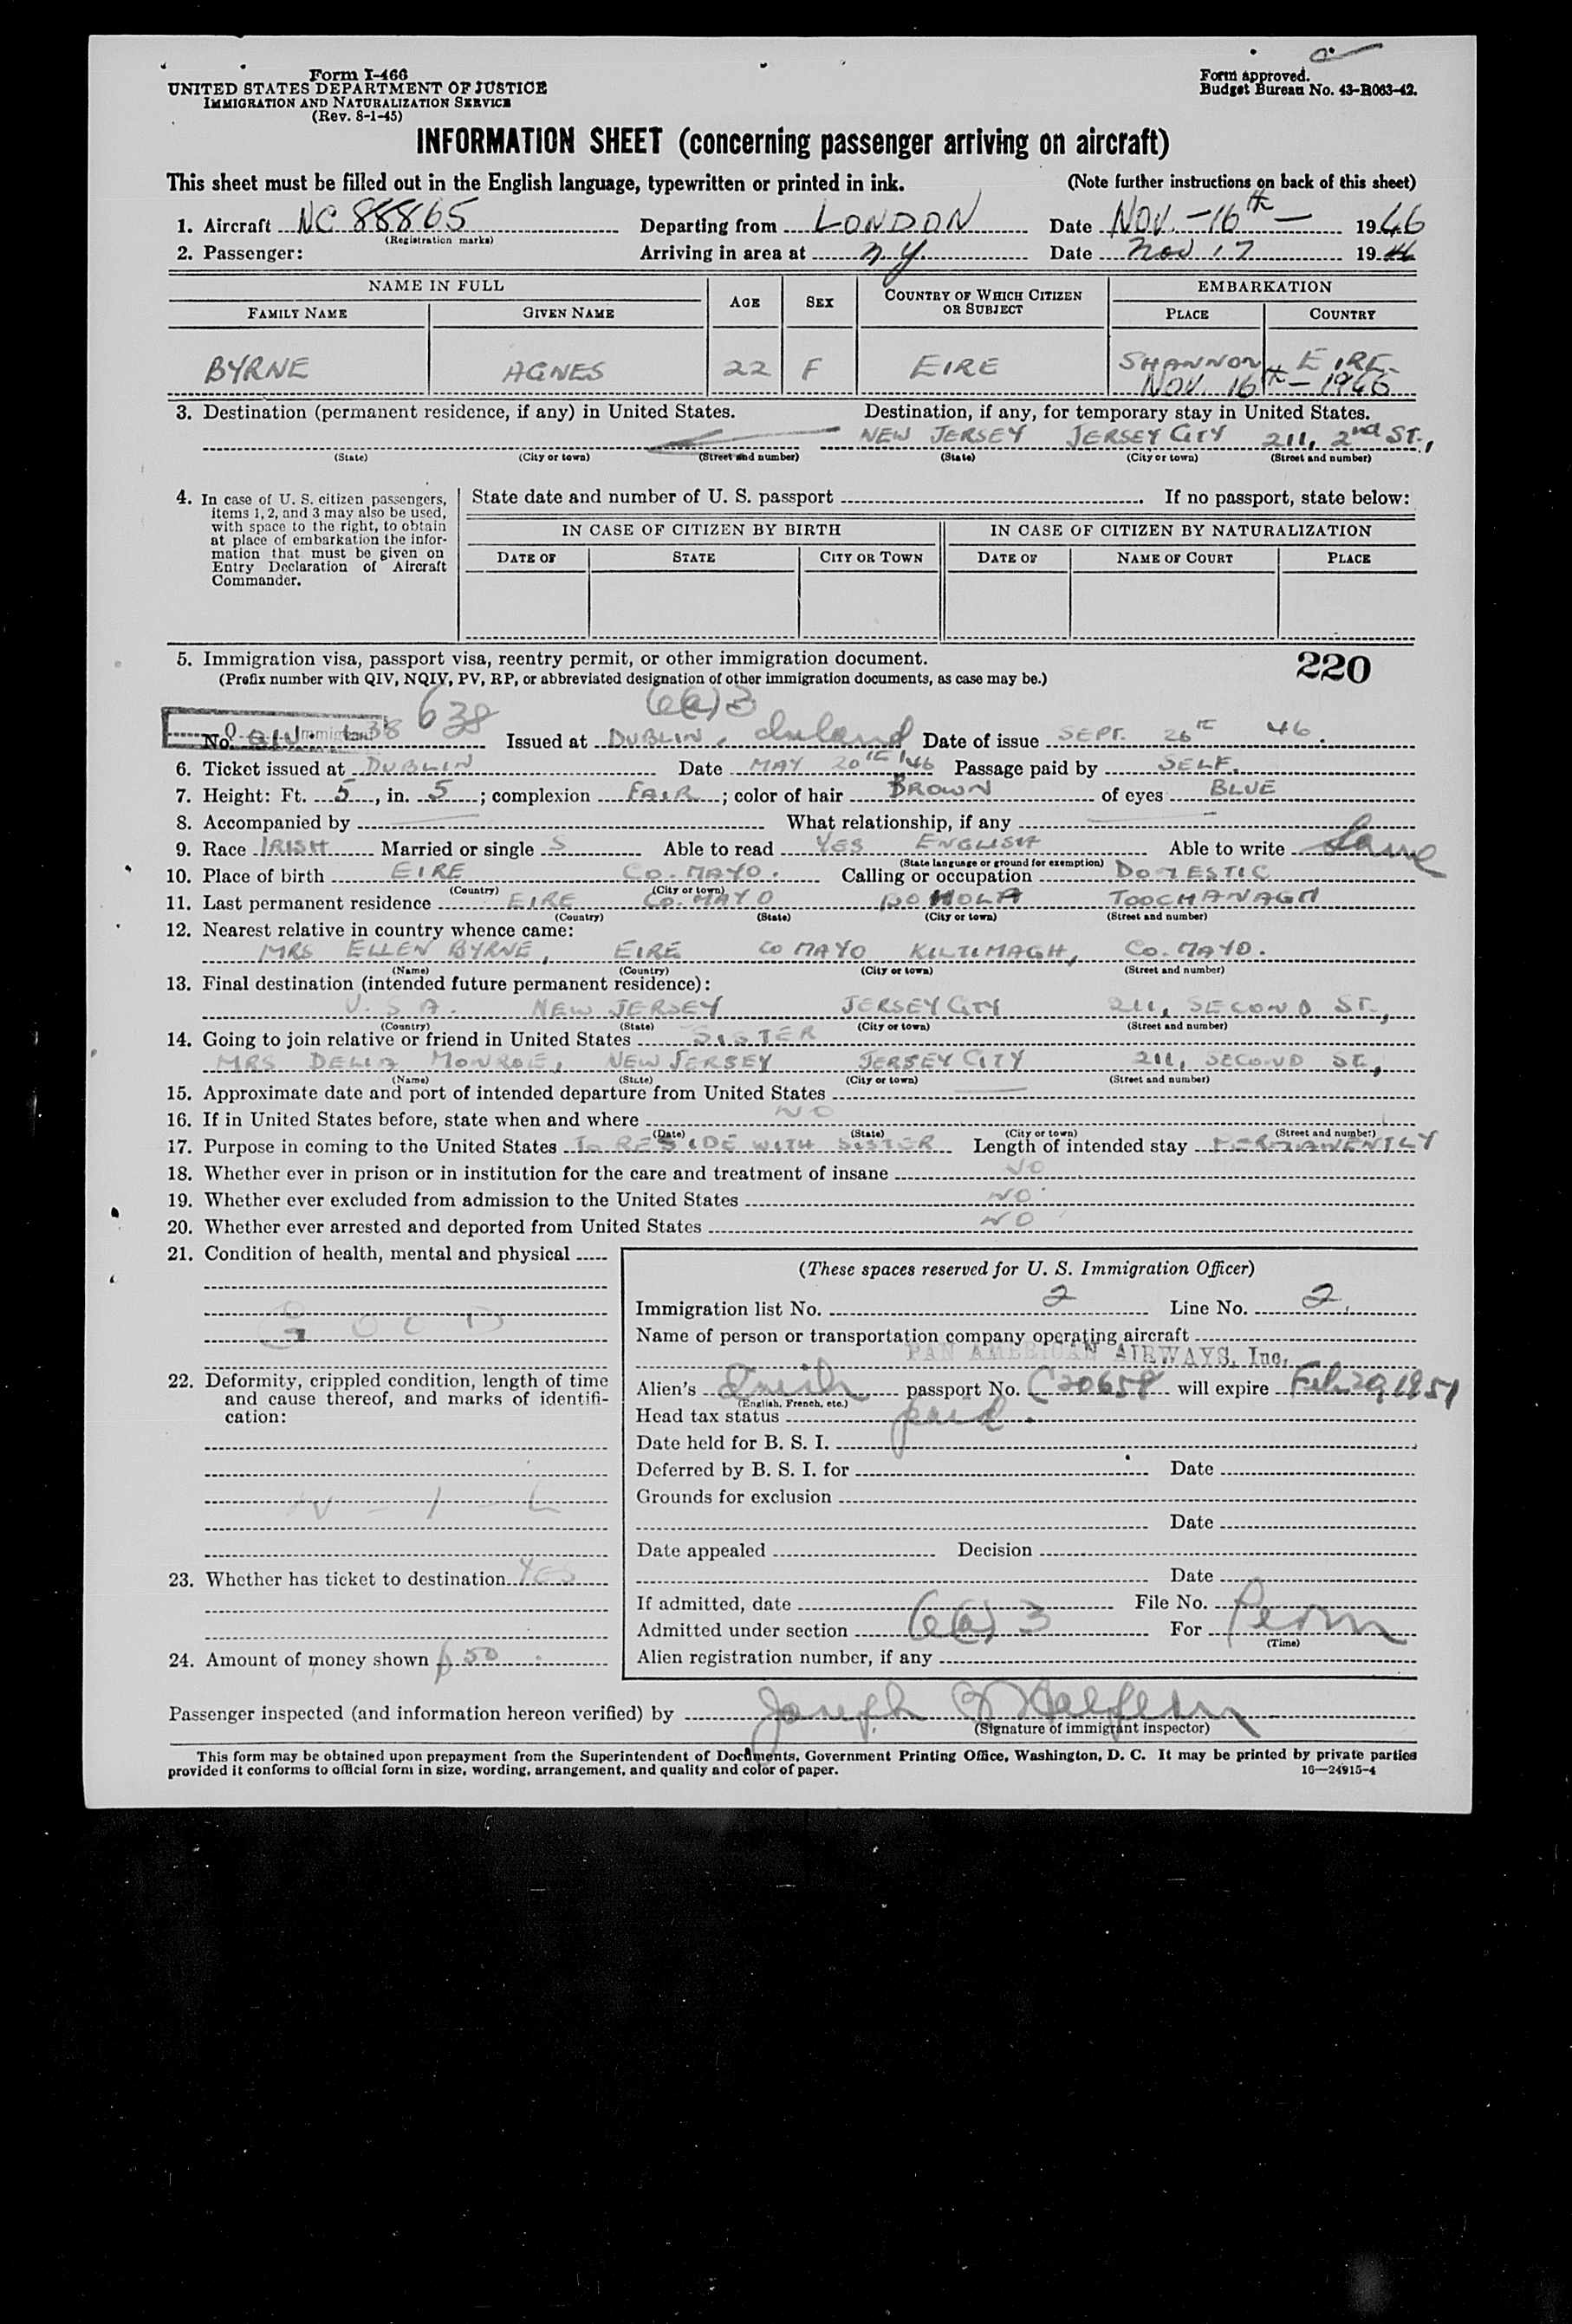 Form I-466
UNITED STATES DEPARTMENT OF JUSTICE
IMMIGRATION AND NATURALIZATION SERVICE
(Rev. 8-1-45)
Form approved.
Budget Bureau No. 43-R063-42.
INFORMATION SHEET (concerning passenger arriving on aircraft)
This sheet must be filled out in the English language, typewritten or printed in ink. (Note further instructions on back of this sheet)
1. Aircraft NC 88865 Departing from LONDON Date NOV. -16th- 1946
(Registration marks)
2. Passenger: Arriving in area at N.Y. Date Nov 17 19
NAME IN FULL AGE SEX COUNTRY OF WHICH CITIZEN OR SUBJECT EMBARKATION
FAMILY NAME GIVEN NAME PLACE COUNTRY
BYRNE AGNES 22 F EIRE SHANNON EIRE
NOV. 16th - 1946
3. Destination (permanent residence, if any) in United States. Destination, if any, for temporary stay in United States.
NEW JERSEY JERSEY CITY 211, 2nd ST.,
(State) (City or town) (Street and number) (State) (City or town) (Street and number)
4. In case of U. S. citizen passengers, items 1, 2, and 3 may also be used, with space to the right, to obtain at place of embarkation the information that must be given on Entry Declaration of Aircraft Commander.
State date and number of U. S. passport If no passport, state below:
IN CASE OF CITIZEN BY BIRTH IN CASE OF CITIZEN BY NATURALIZATION
DATE OF STATE CITY OR TOWN DATE OF NAME OF COURT PLACE
5. Immigration visa, passport visa, reentry permit, or other immigration document. 220
(Prefix number with QIV, NQIV, PV, RP, or abbreviated designation of other immigration documents, as case may be.)
638 6(a)3
No. QIV. 638 Issued at DUBLIN, Ireland Date of issue SEPT. 26th 46.
6. Ticket issued at DUBLIN Date MAY 20th '46 Passage paid by SELF.
7. Height: Ft. 5, in. 5; complexion FAIR; color of hair BROWN of eyes BLUE
8. Accompanied by What relationship, if any
9. Race IRISH Married or single S Able to read YES ENGLISH Able to write Same
(State language or ground for exemption)
10. Place of birth EIRE CO. MAYO. Calling or occupation DOMESTIC
(Country) (City or town)
11. Last permanent residence EIRE CO. MAYO BOHOLA TOOCHANAGH
(Country) (State) (City or town) (Street and number)
12. Nearest relative in country whence came:
MRS ELLEN BYRNE, EIRE CO MAYO KILTIMAGH, CO. MAYO.
(Name) (Country) (City or town) (Street and number)
13. Final destination (intended future permanent residence):
U. S. A. NEW JERSEY JERSEY CITY 211, SECOND ST.,
(Country) (State) (City or town) (Street and number)
14. Going to join relative or friend in United States SISTER
MRS. DELIA MONROE, NEW JERSEY JERSEY CITY 211, SECOND ST.,
(Name) (State) (City or town) (Street and number)
15. Approximate date and port of intended departure from United States
16. If in United States before, state when and where NO
(Date) (State) (City or town) (Street and number)
17. Purpose in coming to the United States TO RESIDE WITH SISTER Length of intended stay PERMANENTLY
18. Whether ever in prison or in institution for the care and treatment of insane NO
19. Whether ever excluded from admission to the United States NO
20. Whether ever arrested and deported from United States NO
21. Condition of health, mental and physical
GOOD
22. Deformity, crippled condition, length of time and cause thereof, and marks of identification:
N-I-L
23. Whether has ticket to destination YES
24. Amount of money shown $50
(These spaces reserved for U. S. Immigration Officer)
Immigration list No. 2 Line No. 2.
Name of person or transportation company operating aircraft
PAN AMERICAN AIRWAYS, Inc.
Alien's Irish passport No. C20658 will expire Feb 29, 1951
(English, French, etc.)
Head tax status paid.
Date held for B. S. I.
Deferred by B. S. I. for Date
Grounds for exclusion
Date
Date appealed Decision
Date
If admitted, date File No.
Admitted under section 6(a)3 For Perm
(Time)
Alien registration number, if any
Passenger inspected (and information hereon verified) by Joseph Halpern
(Signature of immigrant inspector)
This form may be obtained upon prepayment from the Superintendent of Documents, Government Printing Office, Washington, D. C. It may be printed by private parties
provided it conforms to official form in size, wording, arrangement, and quality and color of paper. 16—24915-4